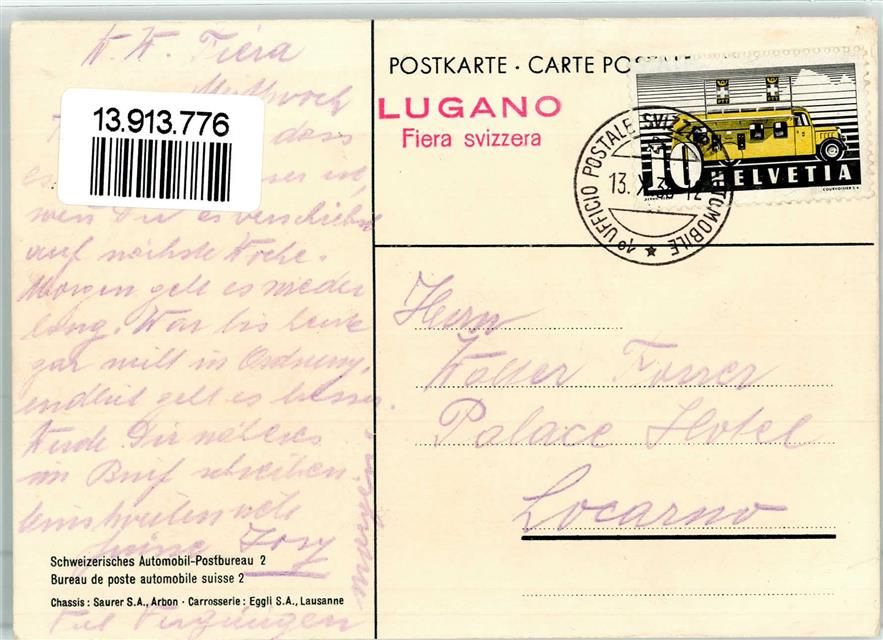 W. W. Fiera
Mittwoch
13.913.776
dass
es
wen Du es verschiebst
auf nächste Woche.
Morgen geht es wieder
long. War bis heute
gar nicht in Ordnung,
endlich geht es besser.
Werde Dir näheres
im Brief schreiben
Schweizerisches Automobil-Postbureau 2
Bureau de poste automobile suisse 2
Chassis : Saurer S.A., Arbon · Carrosserie : Eggli S.A., Lausanne
Viel Vergnügen
morgen.
POSTKARTE · CARTE
LUGANO
Fiera svizzera
UFFICIO POSTALE SVIZZERO AUTOMOBILE
13. X. 12
10 HELVETIA
COURVOISIER S.A.
Herrn
Walter Forrer
Palace Hotel
Locarno